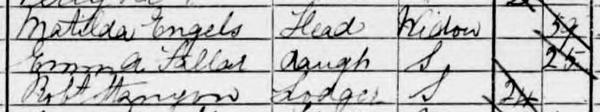 Matilda Engels Head Widow 52
Emma Fallat daugh S 25
Robt Hanyon Lodger S 24